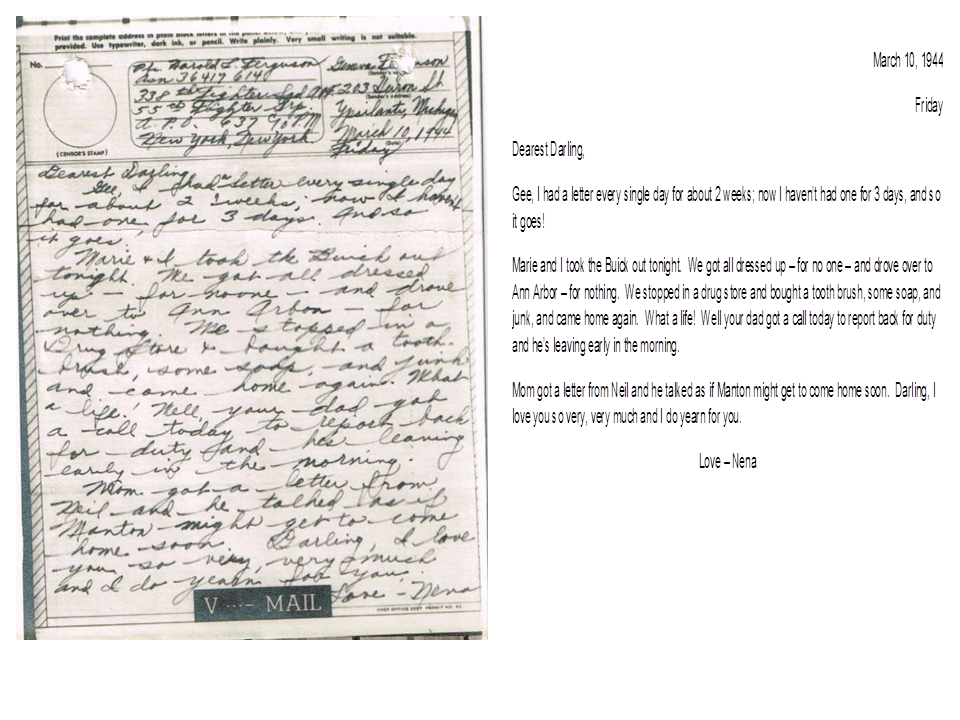 Print the complete address in plain block letters in the panel below, and
provided. Use typewriter, dark ink, or pencil. Write plainly. Very small writing is not suitable.
No.
(CENSOR'S STAMP)
Pfc. Harold L. Ferguson
Asn 36417614
338th Fighter Sqd
55th Fighter Grp.
A.P.O. 637 % P.M.
New York, New York.
Geneva Ferguson
(Sender's name)
203 Huron St.
(Sender's address)
Ypsilanti, Michigan
March 10, 1944
(Date)
Friday
Dearest Darling,
Gee, I had a letter every single day
for about 2 weeks; now I haven't
had one for 3 days. And so
it goes!
Marie & I took the Buick out
tonight. We got all dressed
up – for no one – and drove
over to Ann Arbor – for
nothing. We stopped in a
Drug Store & bought a tooth-
brush, some soap, and junk
and came home again. What
a life! Well, your dad got
a call today to report back
for duty and he's leaving
early in the morning.
Mom got a letter from
Neil and he talked as if
Manton might get to come
home soon. Darling, I love
you so very, very much
and I do yearn for you.
Love – Nena
V ···– MAIL
POST OFFICE DEPT. PERMIT NO.
March 10, 1944
Friday
Dearest Darling,
Gee, I had a letter every single day for about 2 weeks; now I haven't had one for 3 days, and so
it goes!
Marie and I took the Buick out tonight. We got all dressed up – for no one – and drove over to
Ann Arbor – for nothing. We stopped in a drug store and bought a tooth brush, some soap, and
junk, and came home again. What a life! Well your dad got a call today to report back for duty
and he's leaving early in the morning.
Mom got a letter from Neil and he talked as if Manton might get to come home soon. Darling, I
love you so very, very much and I do yearn for you.
Love – Nena